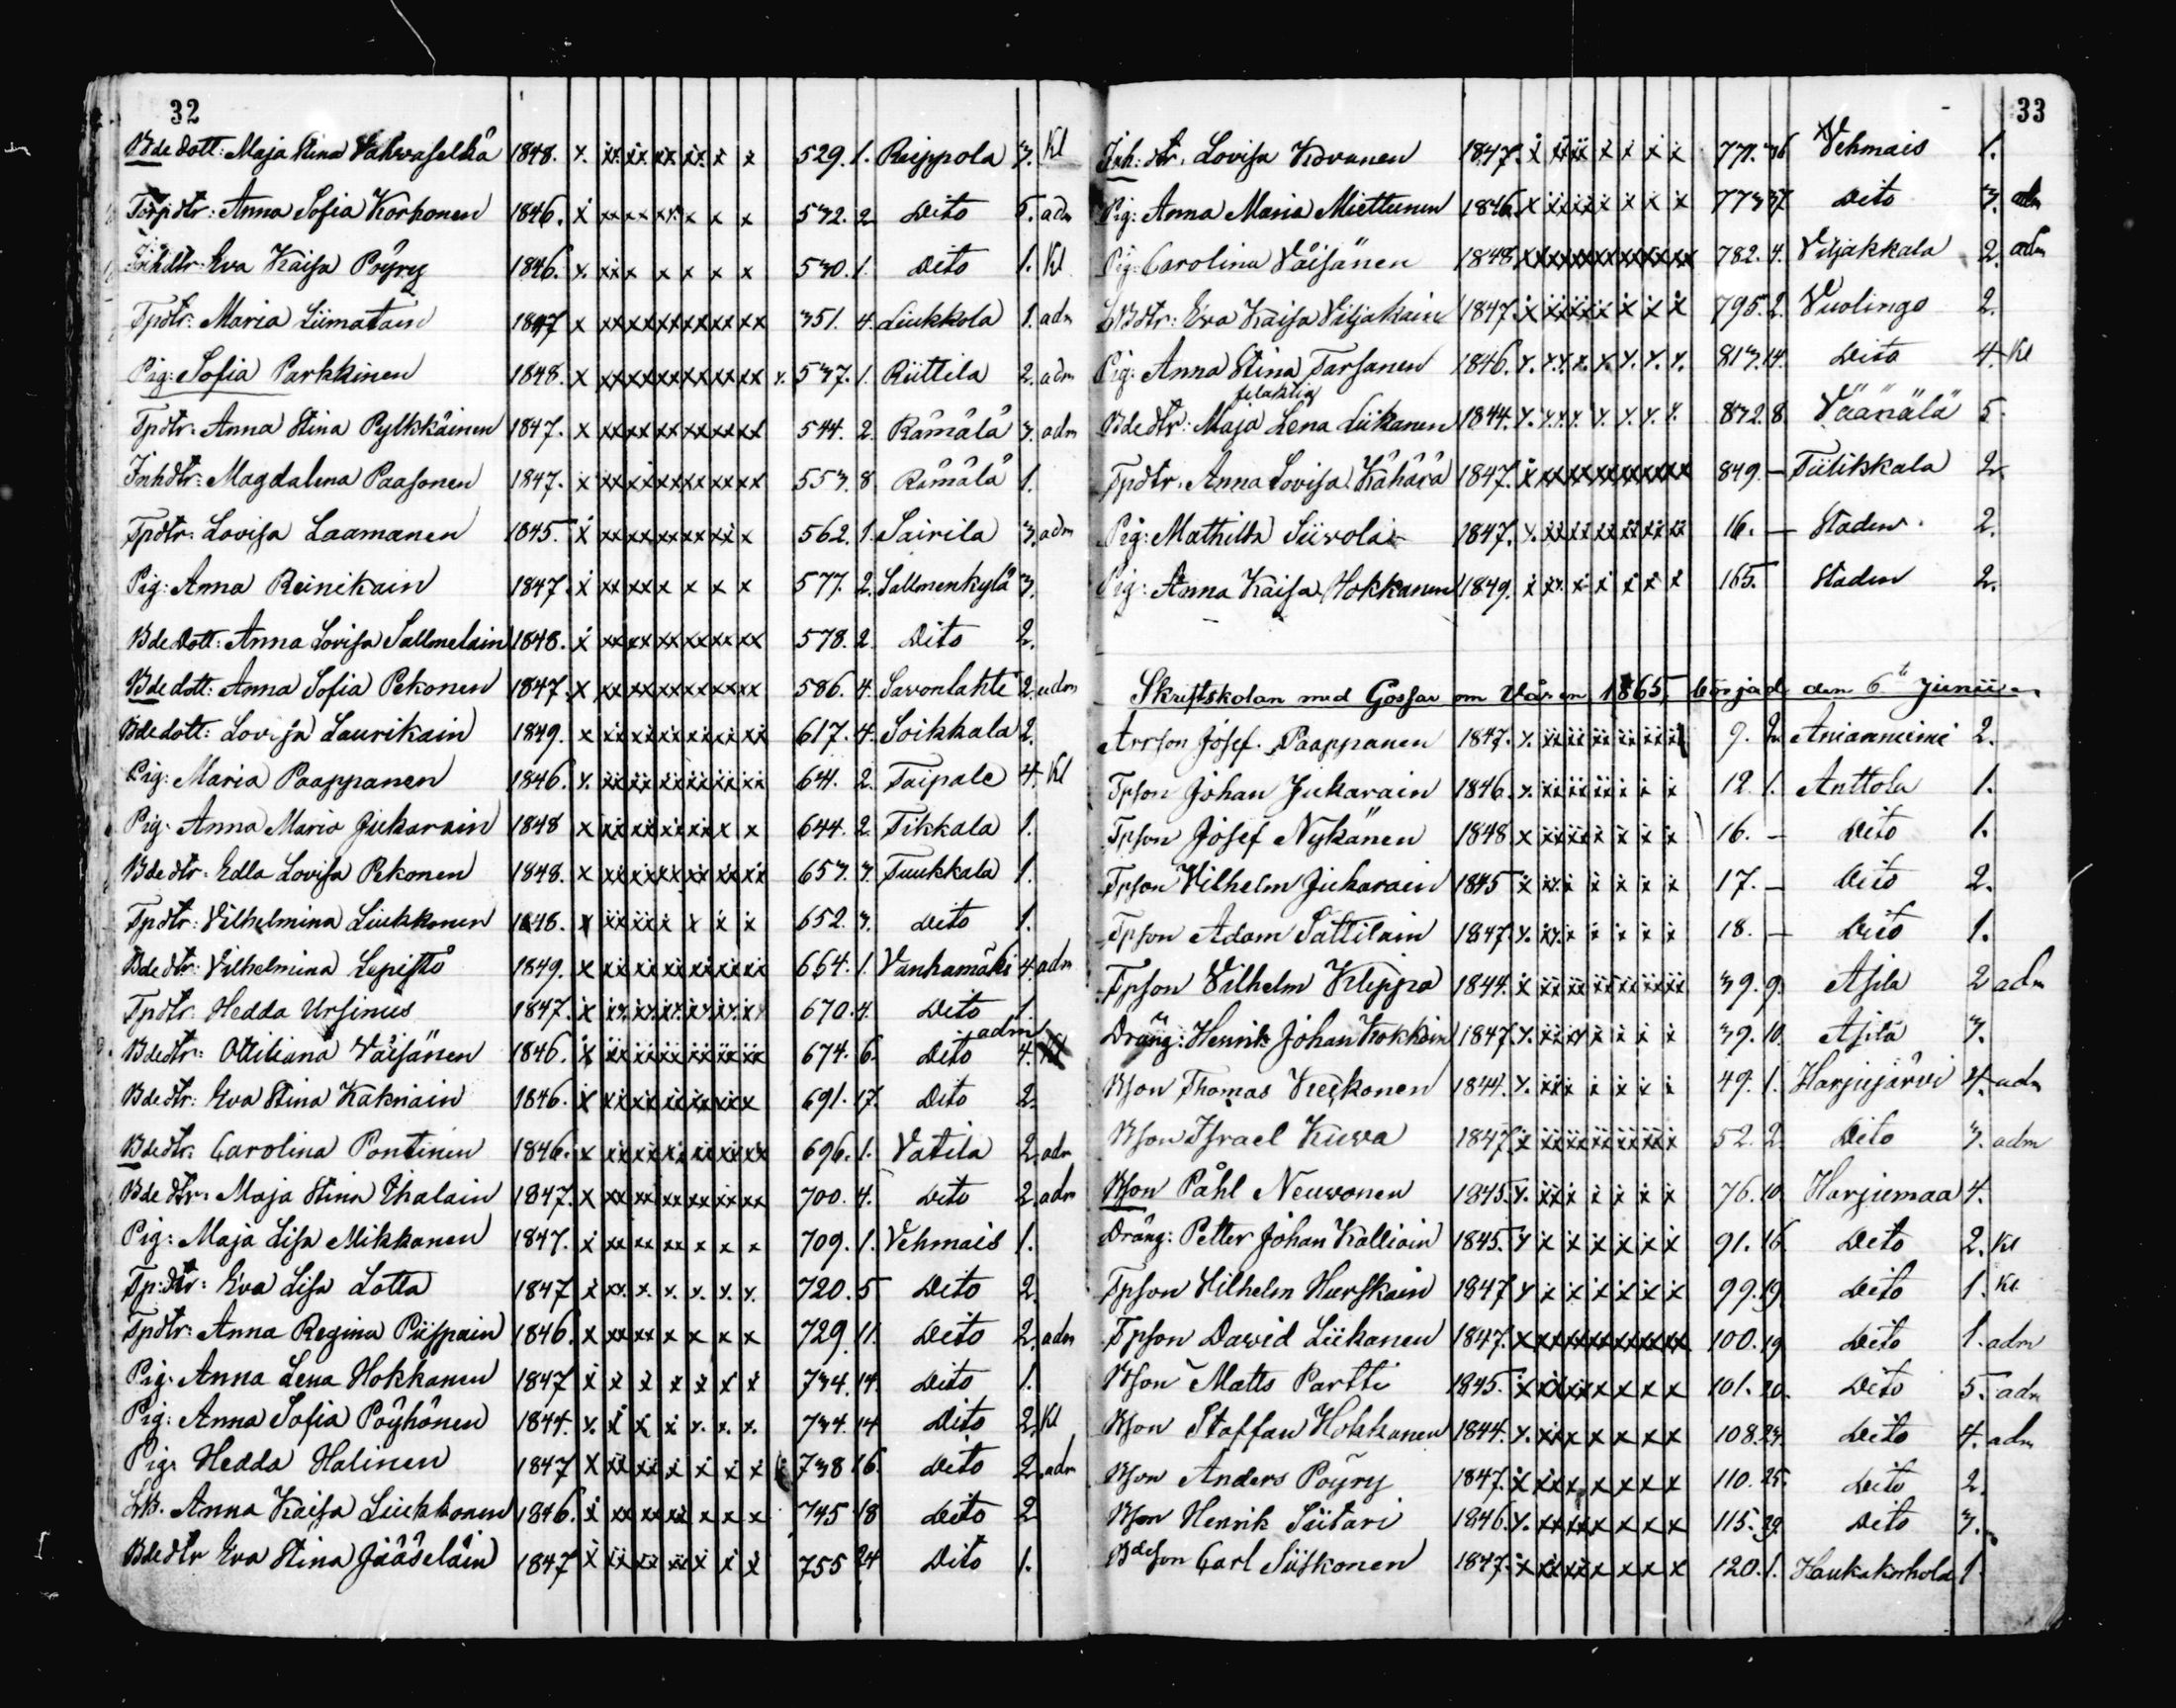 32
Bde dott: Maja Stina Vahvaselkä 1848. x. xx xx xx xx x x 529. 1. Reippola 3. Kl
Torpdtr: Anna Sofia Korhonen 1846. x xx xx xx x x x 532. 2 Dito 5. adm
Inhdtr: Eva Kaisa Pöyry 1846. x. xx x x x x x 530. 1. Dito 1. Kl
Tpdtr: Maria Liimatain 1847 x xx xx xx xx xx xx 351. 4. Liukkola 1. adm
Pig: Sofia Parkkinen 1848. x xx xx xx xx xx xx x. 537. 1. Riittila 2. adm
Tpdtr: Anna Stina Pylkkäinen 1847. x xx xx xx xx xx xx 544. 2. Rämälä 3. adm
Inhdtr: Magdalena Paasonen 1847. x xx xx xx xx xx xx 553. 8. Rämälä 1.
Tpdtr: Lovisa Laamanen 1845. x xx xx xx xx xx x 562. 1. Sairila 3. adm
Pig: Anna Reinikain 1847. x xx xx x x x x 577. 2. Sallmenkylä 3.
Bde Dott: Anna Lovisa Sallmelain 1848. x xx xx xx xx xx xx 578. 2 Dito 2.
Bde dott: Anna Sofia Pekonen 1847. x xx xx xx xx xx xx 586. 4. Savonlahti 2. adm
Bde dott: Lovisa Laurikain 1849. x xx xx xx xx xx xx 617. 4. Soikkala 2.
Pig: Maria Paappanen 1846. x. xx xx xx xx xx xx 641. 2. Taipale 4. Kl
Pig: Anna Maria Jukarain 1848 x xx xx xx xx x x 644. 2 Tikkala 1.
Bde dtr: Edla Lovisa Pekonen 1848. x xx xx xx xx xx xx 653. 3. Tuukkala 1.
Tpdtr: Vilhelmina Liukkonen 1848. x xx xx x x x x 652. 3. Dito 1.
Bde dtr: Vilhelmina Lepistö 1849. x xx xx xx xx xx xx 664. 1. Vanhamäki 4. adm
Tpdtr: Hedda Ursinus 1847. x xx xx xx xx xx xx 670. 4. Dito 1.
Bdedtr: Ottiliana Väisänen 1846. x xx xx xx xx xx xx 674. 6. Dito 4. adm
Bdedtr: Eva Stina Kakriain 1846. x xx xx xx xx xx x 691. 17. Dito 2.
Bdedtr: Carolina Pontinen 1846. x xx xx xx xx xx xx 696. 1. Vatila 2. adm
Bde dtr: Maja Stina Ihalain 1847. x xx xx xx xx xx xx 700. 4. Dito 2. adm
Pig: Maja Lisa Mikkonen 1847. x xx xx xx x x x 709. 1. Vehmais 1.
Tp:dtr: Eva Lisa Lotta 1847 x xx. x. x. x. x. x. 720. 5 Dito 2.
Tpdtr: Anna Regina Piispain 1846. x xx xx x x x x 729. 11. Dito 2. adm
Pig: Anna Lena Hokkanen 1847 x x x x x x x 734. 14. Dito 1.
Pig: Anna Sofia Pöyhönen 1844. x. x x x x. x. x. 734. 14 Dito 2. Kl
Pig: Hedda Halinen 1847 x xx xx x x x x 738 16. Dito 2. adm
Anna Kaisa Liukkonen 1846. x xx xx xx x x x 745 18 Dito 2
Bdedtr Eva Stina Jääseläin 1847 x xx xx xx x x x 755 24 Dito 1.
33
Inh: dtr. Lovisa Kovanen 1847. x xx xx x x x x 771. 36 Vehmais 1.
Pig: Anna Maria Miettunen 1846. x xx xx x x x x 773 37. Dito 3. adm
Pig: Carolina Väisänen 1848 x xx xx xx xx xx xx 782. 4. Viljakkala 2. adm
Bdtr: Eva Kaisa Viljakain 1847. x xx xx x x x x 795. 2. Vuolingo 2.
Pig: Anna Stina Tarsanen 1846. x. x.x. x. x. x. x. x. 813. 14. Dito 4. Kl
Bdedtr: Maja Lena Liikanen 1844. x. x.x.x. x. x. x. x. 832. 8. Väänälä 5.
Tpdtr. Anna Lovisa Kähärä 1847. x xx xx xx xx xx xx 849. — Tiilikkala 2.
Pig: Mathilda Siivola 1847. x. xx xx xx xx xx xx 16. — Staden. 2.
Pig: Anna Kaisa Hokkanen 1849. x xx. x x x x x 165. Staden 2.
Skriftskolan med Gossar om Våren 1865, börjad den 6te Junii
Arrson Josef Paappanen 1847. x. xx xx xx xx xx x 9. 2. Anianniemi 2.
Tpson Johan Jukarain 1846. x. xx xx xx x x x 12. 1. Anttola 1.
Tpson Josef Nykänen 1848 x xx xx x x x x 16. — Dito 1.
Tpson Vilhelm Jukarain 1845 x xx. x x x x x 17. — Dito 2.
Tpson Adam Sattilain 1847. x. xx. x x x x x 18. — Dito 1.
Tpson Vilhelm Kleppa 1844. x xx xx xx xx xx xx 39. 9. Asila 2 adm
Dräng: Henrik Johan Kokkoin 1847. x. xx xx x x x x 39. 10. Asila 3.
Bson Thomas Keckonen 1844. x. xx x x x x x 49. 1. Harjujärvi 4. adm
Bson Israel Kuwa 1847. x xx xx xx xx xx x 52. 2. Dito 3. adm
Bson Påhl Neuvonen 1845. x. xx x x x x x 76. 10 Harjumaa 4.
Dräng: Petter Johan Kalliain 1845. x x x x x x x 91. 16. Dito 2. Kl
Tpson Vilhelm Hurskain 1847. x x x x x x x 99. 19. Dito 1. Kl.
Tpson David Liikanen 1847. x xx xx xx xx xx xx 100. 19 Dito 1. adm
Bson Matts Partti 1845. x xx xx x x x x 101. 20. Dito 5. adm
Bson Staffan Hokkanen 1844. x. xx x x x x x 108. 23. Dito 4. adm
Bson Anders Pöyry 1847. x xx x x x x x 110. 25. Dito 2.
Bson Henrik Siitari 1846. x. xx xx x x x x 115. 29. Dito 3.
Bdeson Carl Siiskonen 1847. x xx xx x x x x 120. 1. Haukakorhola 1.